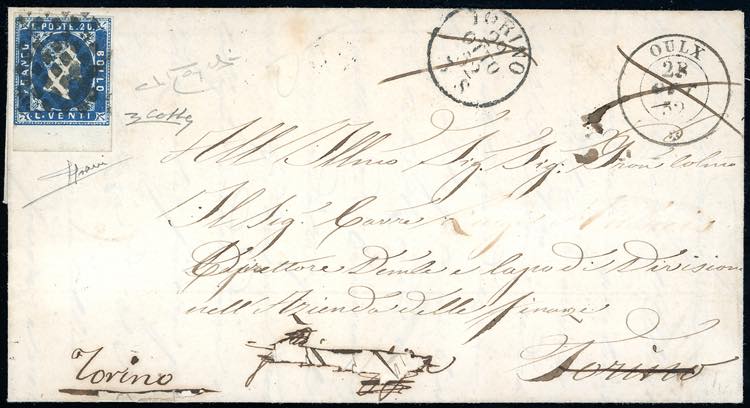 C. POSTE. 20
FRANCO
BOLLO
C. VENTI
TORINO
29
OTTO
52
OULX
28
52
All' Illmo Sig. Sig. Pron Colmo
Il Sig. Cavre
Direttore Demle e Capo di Divisione
nell'Azienda delle Finanze
Torino
Torino